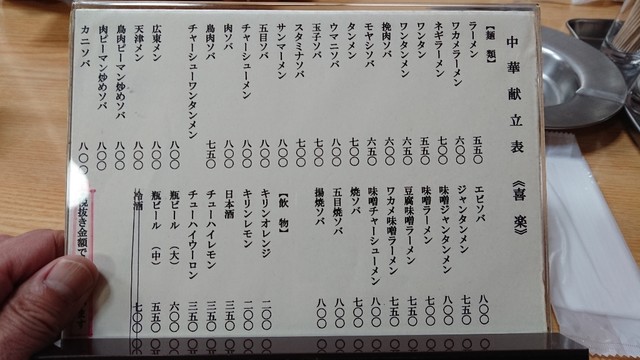 中華献立表 《喜楽》
【麺類】
ラーメン 五五〇
ワカメラーメン 六〇〇
ネギラーメン 七〇〇
ワンタン 五五〇
ワンタンメン 六五〇
挽肉ソバ 六〇〇
モヤシソバ 六五〇
タンメン 七〇〇
ウマニソバ 八〇〇
玉子ソバ 七〇〇
スタミナソバ 七〇〇
サンマーメン 八〇〇
五目ソバ 八〇〇
チャーシューメン 八〇〇
肉ソバ 八〇〇
鳥肉ソバ 七五〇
チャーシューワンタンメン
八〇〇
広東メン
天津メン 八〇〇
鳥肉ピーマン炒めソバ 八〇〇
肉ピーマン炒めソバ 八〇〇
カニソバ 八〇〇
エビソバ 八〇〇
ジャンタンメン 七五〇
味噌ジャンタンメン 八〇〇
味噌ラーメン 七〇〇
豆腐味噌ラーメン 七五〇
ワカメ味噌ラーメン 七五〇
味噌チャーシューメン 八〇〇
焼ソバ 七〇〇
五目焼ソバ 八〇〇
揚焼ソバ 八〇〇
【飲物】
キリンオレンジ 二〇〇
キリンレモン 二〇〇
日本酒 三五〇
チューハイレモン 三五〇
チューハイウーロン 三五〇
瓶ビール (大) 六〇〇
瓶ビール (中) 五五〇
冷酒 七〇〇
税抜き金額で